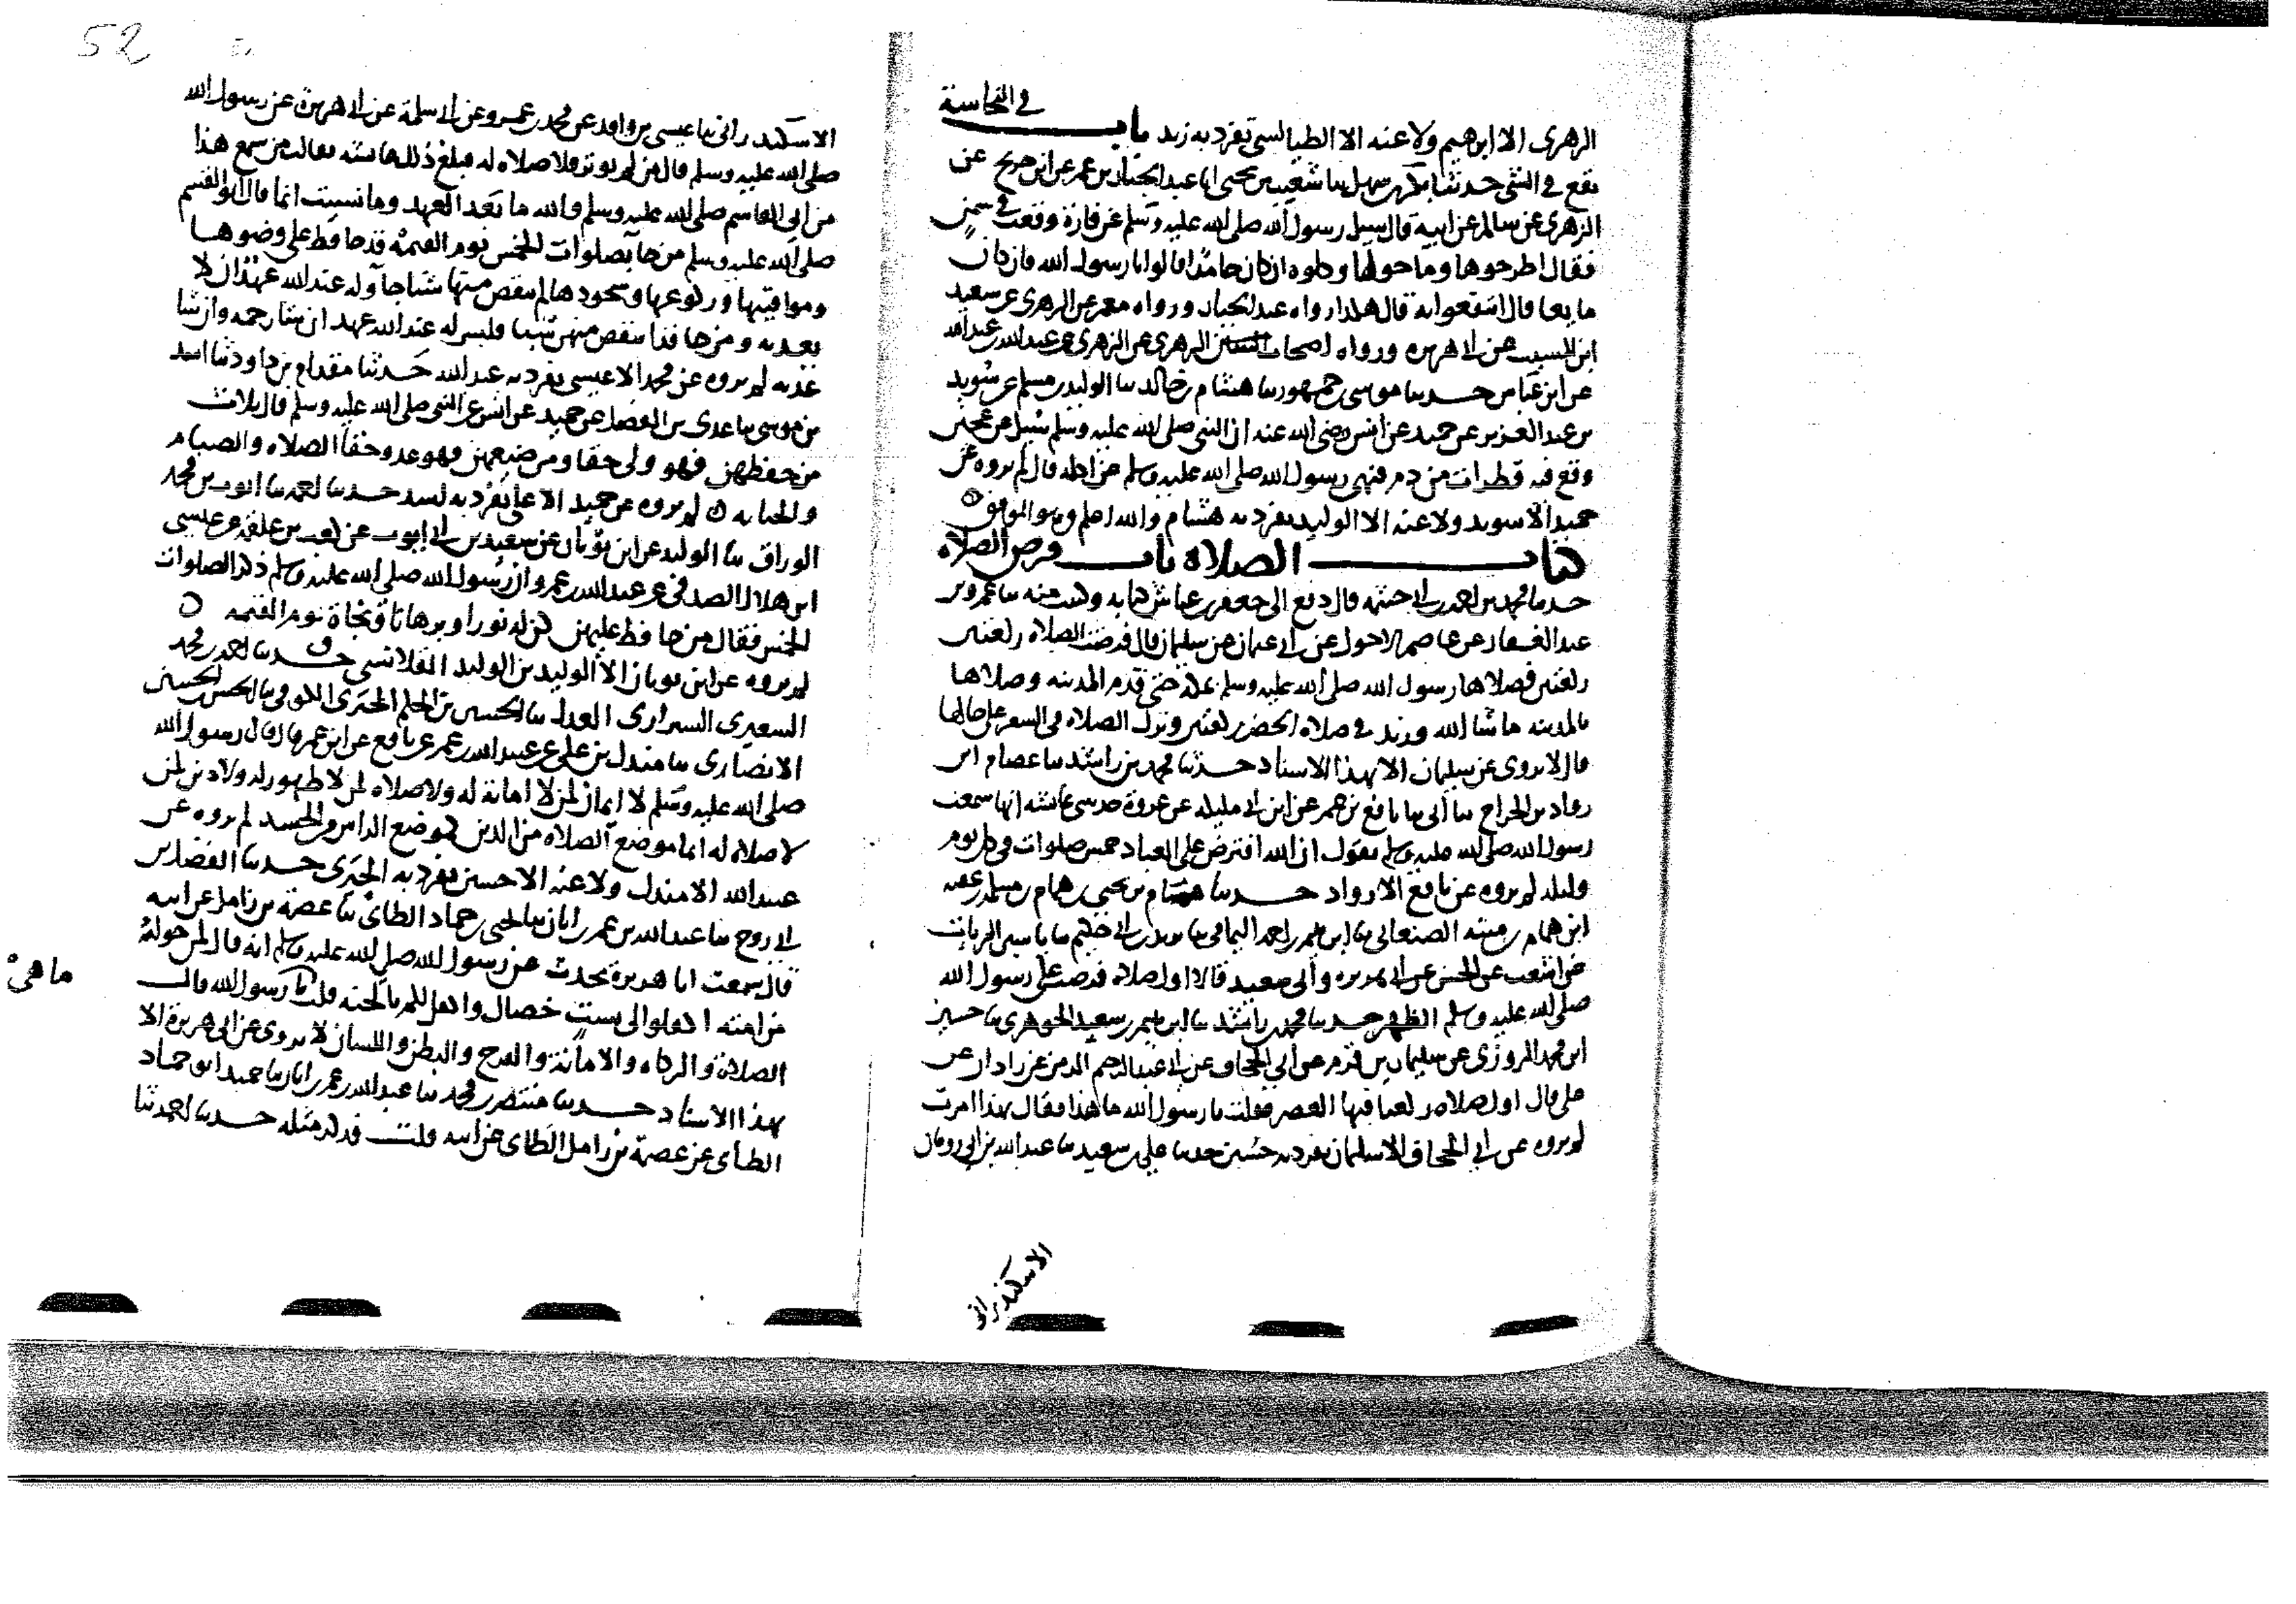 في النجاسة
الزهرى الا ابرهيم ولا عنه الا الطيالسي تفرد به زيد باب
تقع في الشئ حدثنا بكر بن سهل ثنا شعيب بن يحيى انا عبد الجبار بن عمر عن ابن جريج عن
الزهرى عن سالم عن ابيه قال سيل رسول الله صلى الله عليه وسلم عن فارة وقعت في سمن
فقال اطرحوها وما حولها وكلوه ان كان جامدا قالوا يا رسول الله فان كان
مايعا قال انتفعوا به قال هكذا رواه عبد الجبار ورواه معمر عن الزهرى عن سعيد
ابن المسيب عن ابى هريره ورواه اصحاب الزهرى عن الزهرى عن عبيد الله بن عبد الله
عن ابن عباس حدثنا موسى بن جمهور ثنا هشام بن خالد ثنا الوليد بن مسلم عن سويد
بن عبد العزيز عن حميد عن انس رضى الله عنه ان النبي صلى الله عليه وسلم سُيل عن عجين
وقع فيه قطرات من دم فنهى رسول الله صلى الله عليه وسلم عن اكله قال لم يروه عن
حميد الا سويد ولا عنه الا الوليد تفرد به هشام والله اعلم وهو الموفق
كتاب الصلاة باب فرض الصلاة
حدثنا محمد بن احمد بن ابي خيثمه قال دفع الي جعفر بن عباس كتابه وكتبت منه ثنا عمرو بن
عبد الغفار عن عاصم الاحول عن ابي عثمان عن سلمان قال فرضت الصلاه ركعتين
ركعتين فصلاها رسول الله صلى الله عليه وسلم بمكة حتى قدم المدينه وصلاها
بالمدينه ما شا الله وزيد في صلاه الحضر ركعتين وترك الصلاه في السفر على حالها
قال لا يروى عن سلمان الا بهذا الاسناد حدثنا محمد بن راشد ثنا عصام ابن
رواد بن الجراح ثنا أبي ثنا نافع بن عمر عن ابن ابي مليكه عن عروة حدثتني عائشه انها سمعت
رسول الله صلى الله عليه وسلم يقول ان الله افترض على العباد خمس صلوات في كل يوم
وليله لم يروه عن نافع الا رواد حدثنا همام بن يحيى بن همام بن مسلمه بن عقبه
ابن همام بن منبه الصنعاني ثنا ابراهيم بن احمد اليمامي ثنا يزيد بن ابي حكيم ثنا ياسين الزيات
عن اشعب عن الحسن عن ابي هريره وأبي سعيد قالا اول صلاه فرضت على رسول الله
صلى الله عليه وسلم الظهر حدثنا محمد بن راشد ثنا ابرهيم بن سعيد الجوهرى ثنا حسين
ابن محمد المروزى عن سليمان بن قرم عن أبي الجحاف عن ابي عبد الرحيم الرمن عن زاذان عن
علي قال اول صلاه ركعنا فيها العصر فقلت يا رسول الله ما هذا فقال بهذا امرت
لم يروه عن ابي الجحاف الا سليمان تفرد به حسين حدثنا علي بن سعيد ثنا عبد الله بن ابي رومان
الاسكندراني
52
الاسكندراني ثنا عيسى بن واقد عن محمد بن عمرو عن ابى سلمة عن ابى هريرة عن رسول الله
صلى الله عليه وسلم قال من لم يوتر فلا صلاه له فبلغ ذلك عائشه فقالت من سمع هذا
من ابي القاسم صلى الله عليه وسلم والله ما بعد العهد وما نسيت انما قال ابو القسم
صلى الله عليه وسلم من جا بصلوات الخمس يوم القيمة قد حافظ على وضوها
ومواقيتها وركوعها وسجودها لم ينقص منها شيا جا وله عند الله عهد ان لا
يعذبه ومن جا قد انتقص منهن شيا فليس له عند الله عهد ان شا رحمه وان شا
عذبه لم يروه عن محمد الا عيسى تفرد به عبد الله حدثنا مقدام بن داود ثنا اسد
بن موسى ثنا عدى بن الفضل عن حميد عن انس عن النبي صلى الله عليه وسلم قال ثلاث
من حفظهن فهو ولي حقا ومن ضيعهن فهو عدو حقا الصلاه والصيام
والجنابه لم يروه عن حميد الا عدي تفرد به اسد حدثنا احمد ثنا ايوب بن محمد
الوراق ثنا الوليد عن ابن ثوبان عن سعيد بن ابي ايوب عن كعب بن علقمه عن عيسى
ابن هلال الصدفي عن عبد الله بن عمرو ان رسول الله صلى الله عليه وسلم ذكر الصلوات
الخمس فقال من حافظ عليهن كن له نورا وبرهانا ونجاة يوم القيمه
لم يروه عن ابن ثوبان الا الوليد بن الوليد القلانسي حدثنا احمد بن محمد
السعيرى الشيرازى العدل ثنا الحسين بن الحكم الحبرى الكوفي ثنا الحسن بن الحسين
الانصارى ثنا مندل بن علي عن عبيد الله بن عمر عن نافع عن ابن عمر قال قال رسول الله
صلى الله عليه وسلم لا ايمان لمن لا امانة له ولا صلاه لمن لا طهور له ولا دين لمن
لا صلاه له انما موضع الصلاه من الدين كموضع الراس من الجسد لم يروه عن
عبيد الله الا مندل ولا عنه الا حسن تفرد به الحبرى حدثنا الفضل بن
ابي روح ثنا عبد الله بن عمر بن ابان ثنا يحيى بن حماد الطائ ثنا عصمة بن زامل عن ابيه
قال سمعت ابا هريرة يحدث عن رسول الله صلى الله عليه وسلم انه قال لمن حوله
من امته اكفلوا لي بست خصال واكفل لكم بالجنه قلت يا رسول الله قال
ما هي
الصلاة والزكاه والامانة والفرج والبطن واللسان لا يروى عن ابي هريرة الا
بهذا الاسناد حدثنا منتصر بن محمد ثنا عبد الله بن عمر بن ابان ثنا حميد ابو حماد
الطائى عن عصمة بن زامل الطاى عن ابيه قلت فذكر مثله حدثنا احمد ثنا